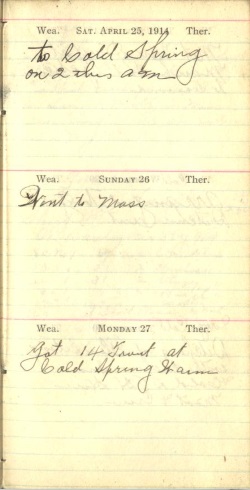 Wea. SAT. APRIL 25, 1914 Ther.
to Cold Spring
on 2 this am
Wea. SUNDAY 26 Ther.
Went to Mass
Wea. MONDAY 27 Ther.
Got 14 Trout at
Cold Spring